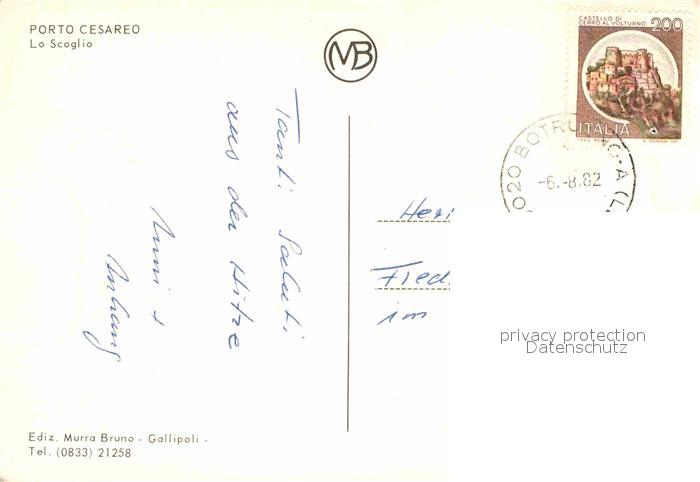 PORTO CESAREO
Lo Scoglio
MB
CASTELLO DI
CERRO AL VOLTURNO
200
ITALIA
020 BOTRUGNO-A (L
-6.-8.82
Tanti Saluti
aus der Hitze
Anni +
Anhang
Heri
Fried.
im
privacy protection
Datenschutz
Ediz. Murra Bruno - Gallipoli -
Tel. (0833) 21258